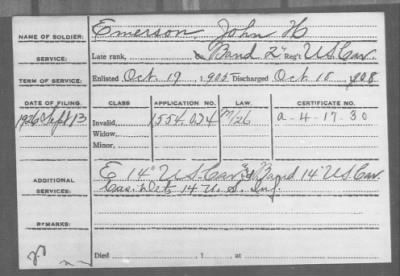 NAME OF SOLDIER: Emerson, John H
SERVICE: Late rank, Band 2" Reg't U.S. Cav.
TERM OF SERVICE: Enlisted Oct. 19, 1905 Discharged Oct 18, 1908
DATE OF FILING. CLASS APPLICATION NO. LAW. CERTIFICATE NO.
1926 Sept 13 Invalid, 1554024 M/26 a-4-17-30
Widow,
Minor,
ADDITIONAL SERVICES: E 14" U.S. Cav. Band 14" U.S. Cav.
Cas. Det. 14 U.S. Inf.
REMARKS:
Died , 1 , at